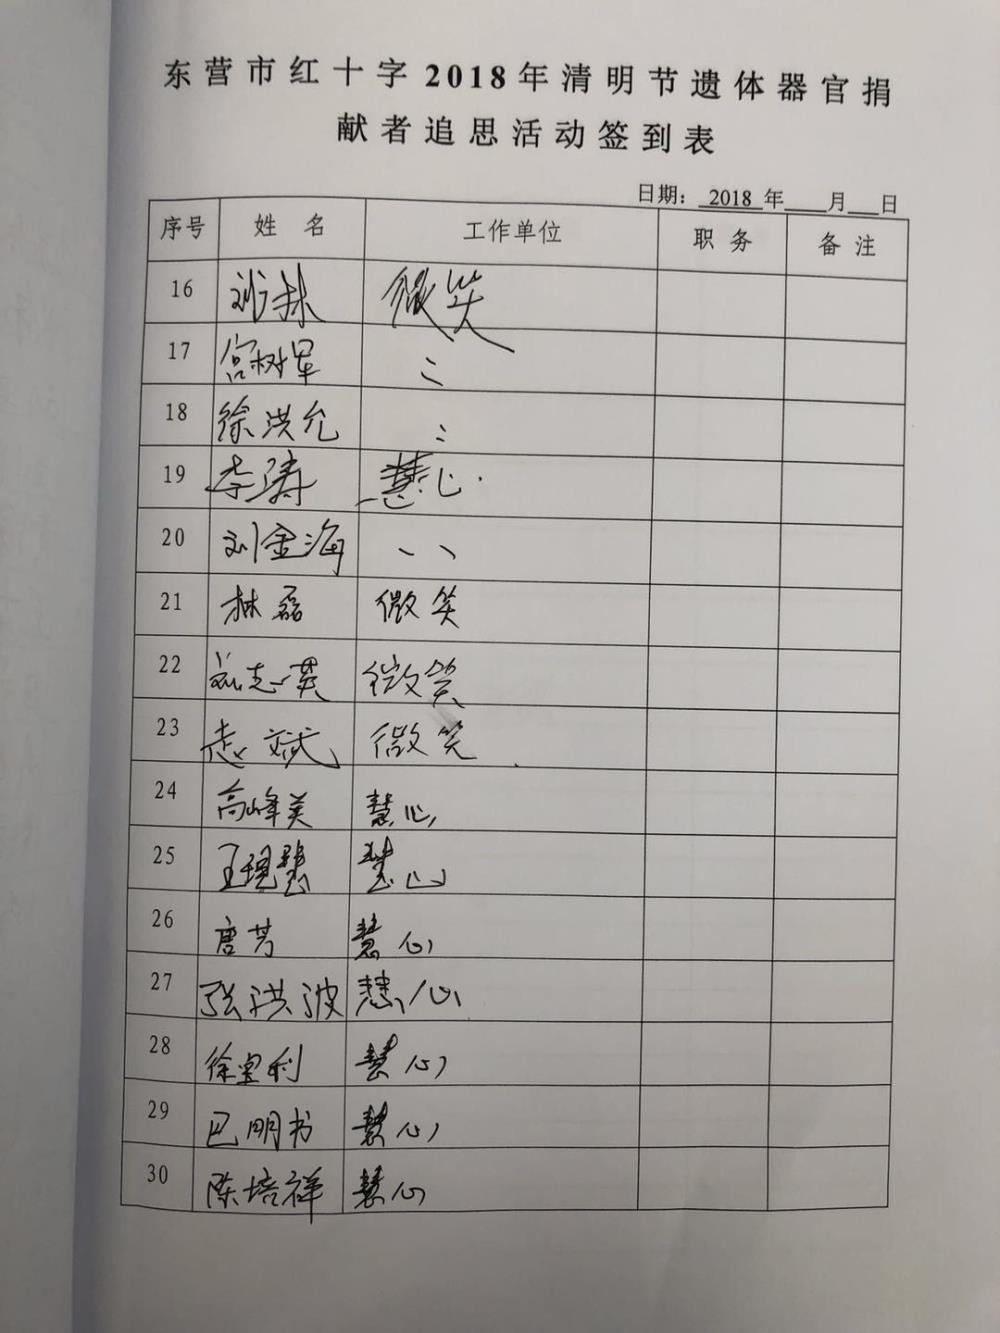 东营市红十字2018年清明节遗体器官捐
献者追思活动签到表
日期： 2018 年 月 日
序号 姓 名 工作单位 职 务 备 注
16 微笑
17 宫树军 〃
18 徐洪允 〃
19 李涛 慧心
20 刘金海 〃
21 林磊 微笑
22 刘志英 微笑
23 赵斌 微笑
24 高峰美 慧心
25 慧心
26 唐芳 慧心
27 张洪波 慧心
28 慧心
29 巴明书 慧心
30 陈培祥 慧心